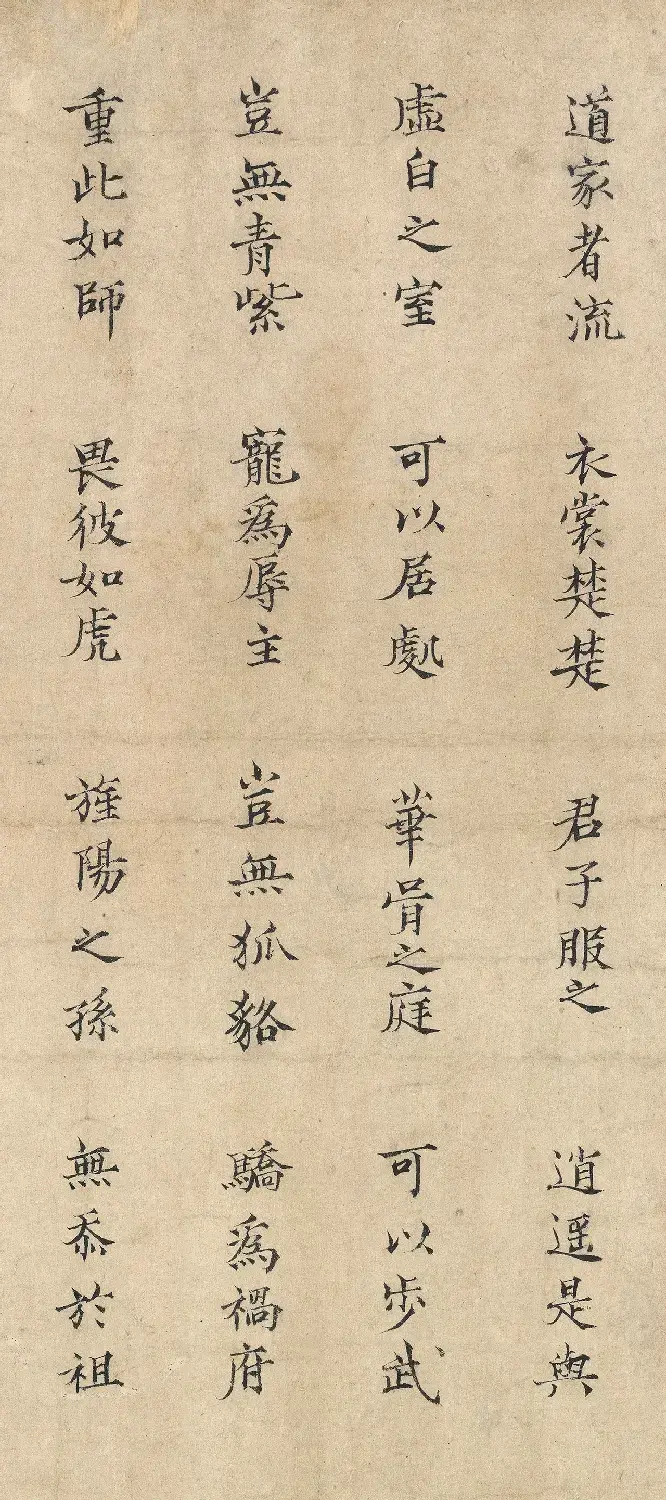 道家者流 衣裳楚楚 君子服之 逍遥是與
虛白之室 可以居處 華胥之庭 可以步武
豈無青紫 寵爲辱主 豈無狐貉 驕爲禍府
重此如師 畏彼如虎 旌陽之孫 無忝於祖